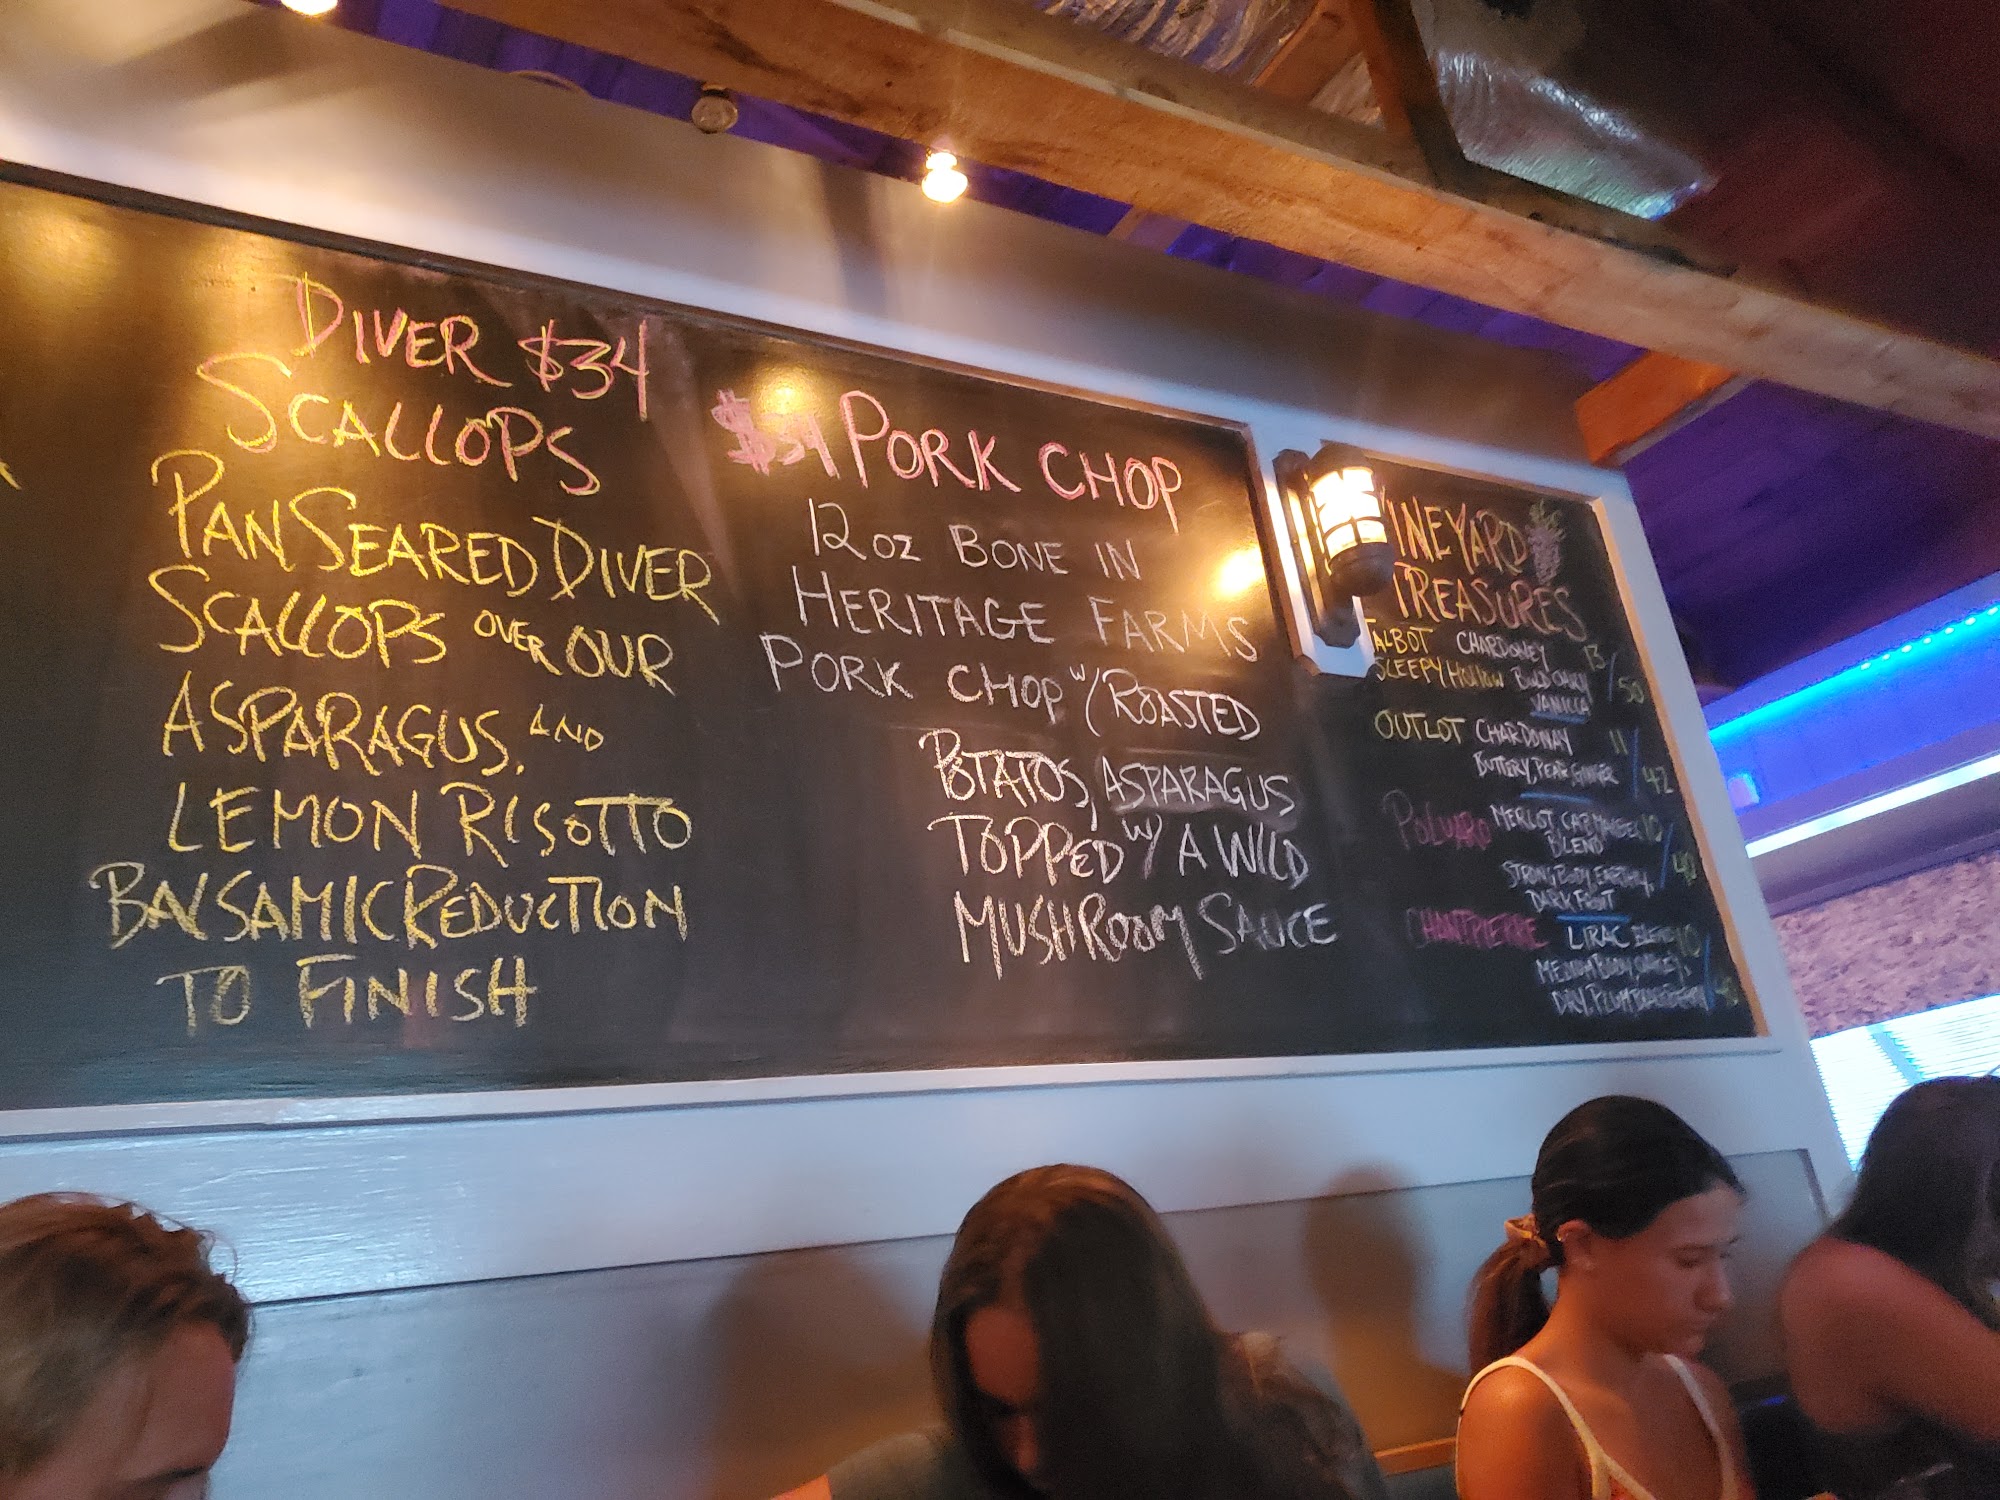 DIVER $34
SCALLOPS
PAN SEARED DIVER
SCALLOPS OVER OUR
ASPARAGUS, AND
LEMON RISOTTO
BALSAMIC REDUCTION
TO FINISH
$34 PORK CHOP
12 OZ BONE IN
HERITAGE FARMS
PORK CHOP W/ ROASTED
POTATOS, ASPARAGUS
TOPPED W/ A WILD
MUSHROOM SAUCE
VINEYARD
TREASURES
TALBOT CHARDONEY 13/
SLEEPY HOLLOW BOLD OAKY 50
VANILLA
OUTLOT CHARDONAY 11/
BUTTERY, PEAR GINGER 42
MERLOT, CAB 10/
BLEND
STRONG BODY, EARTHY, 40
DARK FRUIT
CHANTPIERRE LIRAC BLEND 10/
MEDIUM BODY
DRY, PLUM